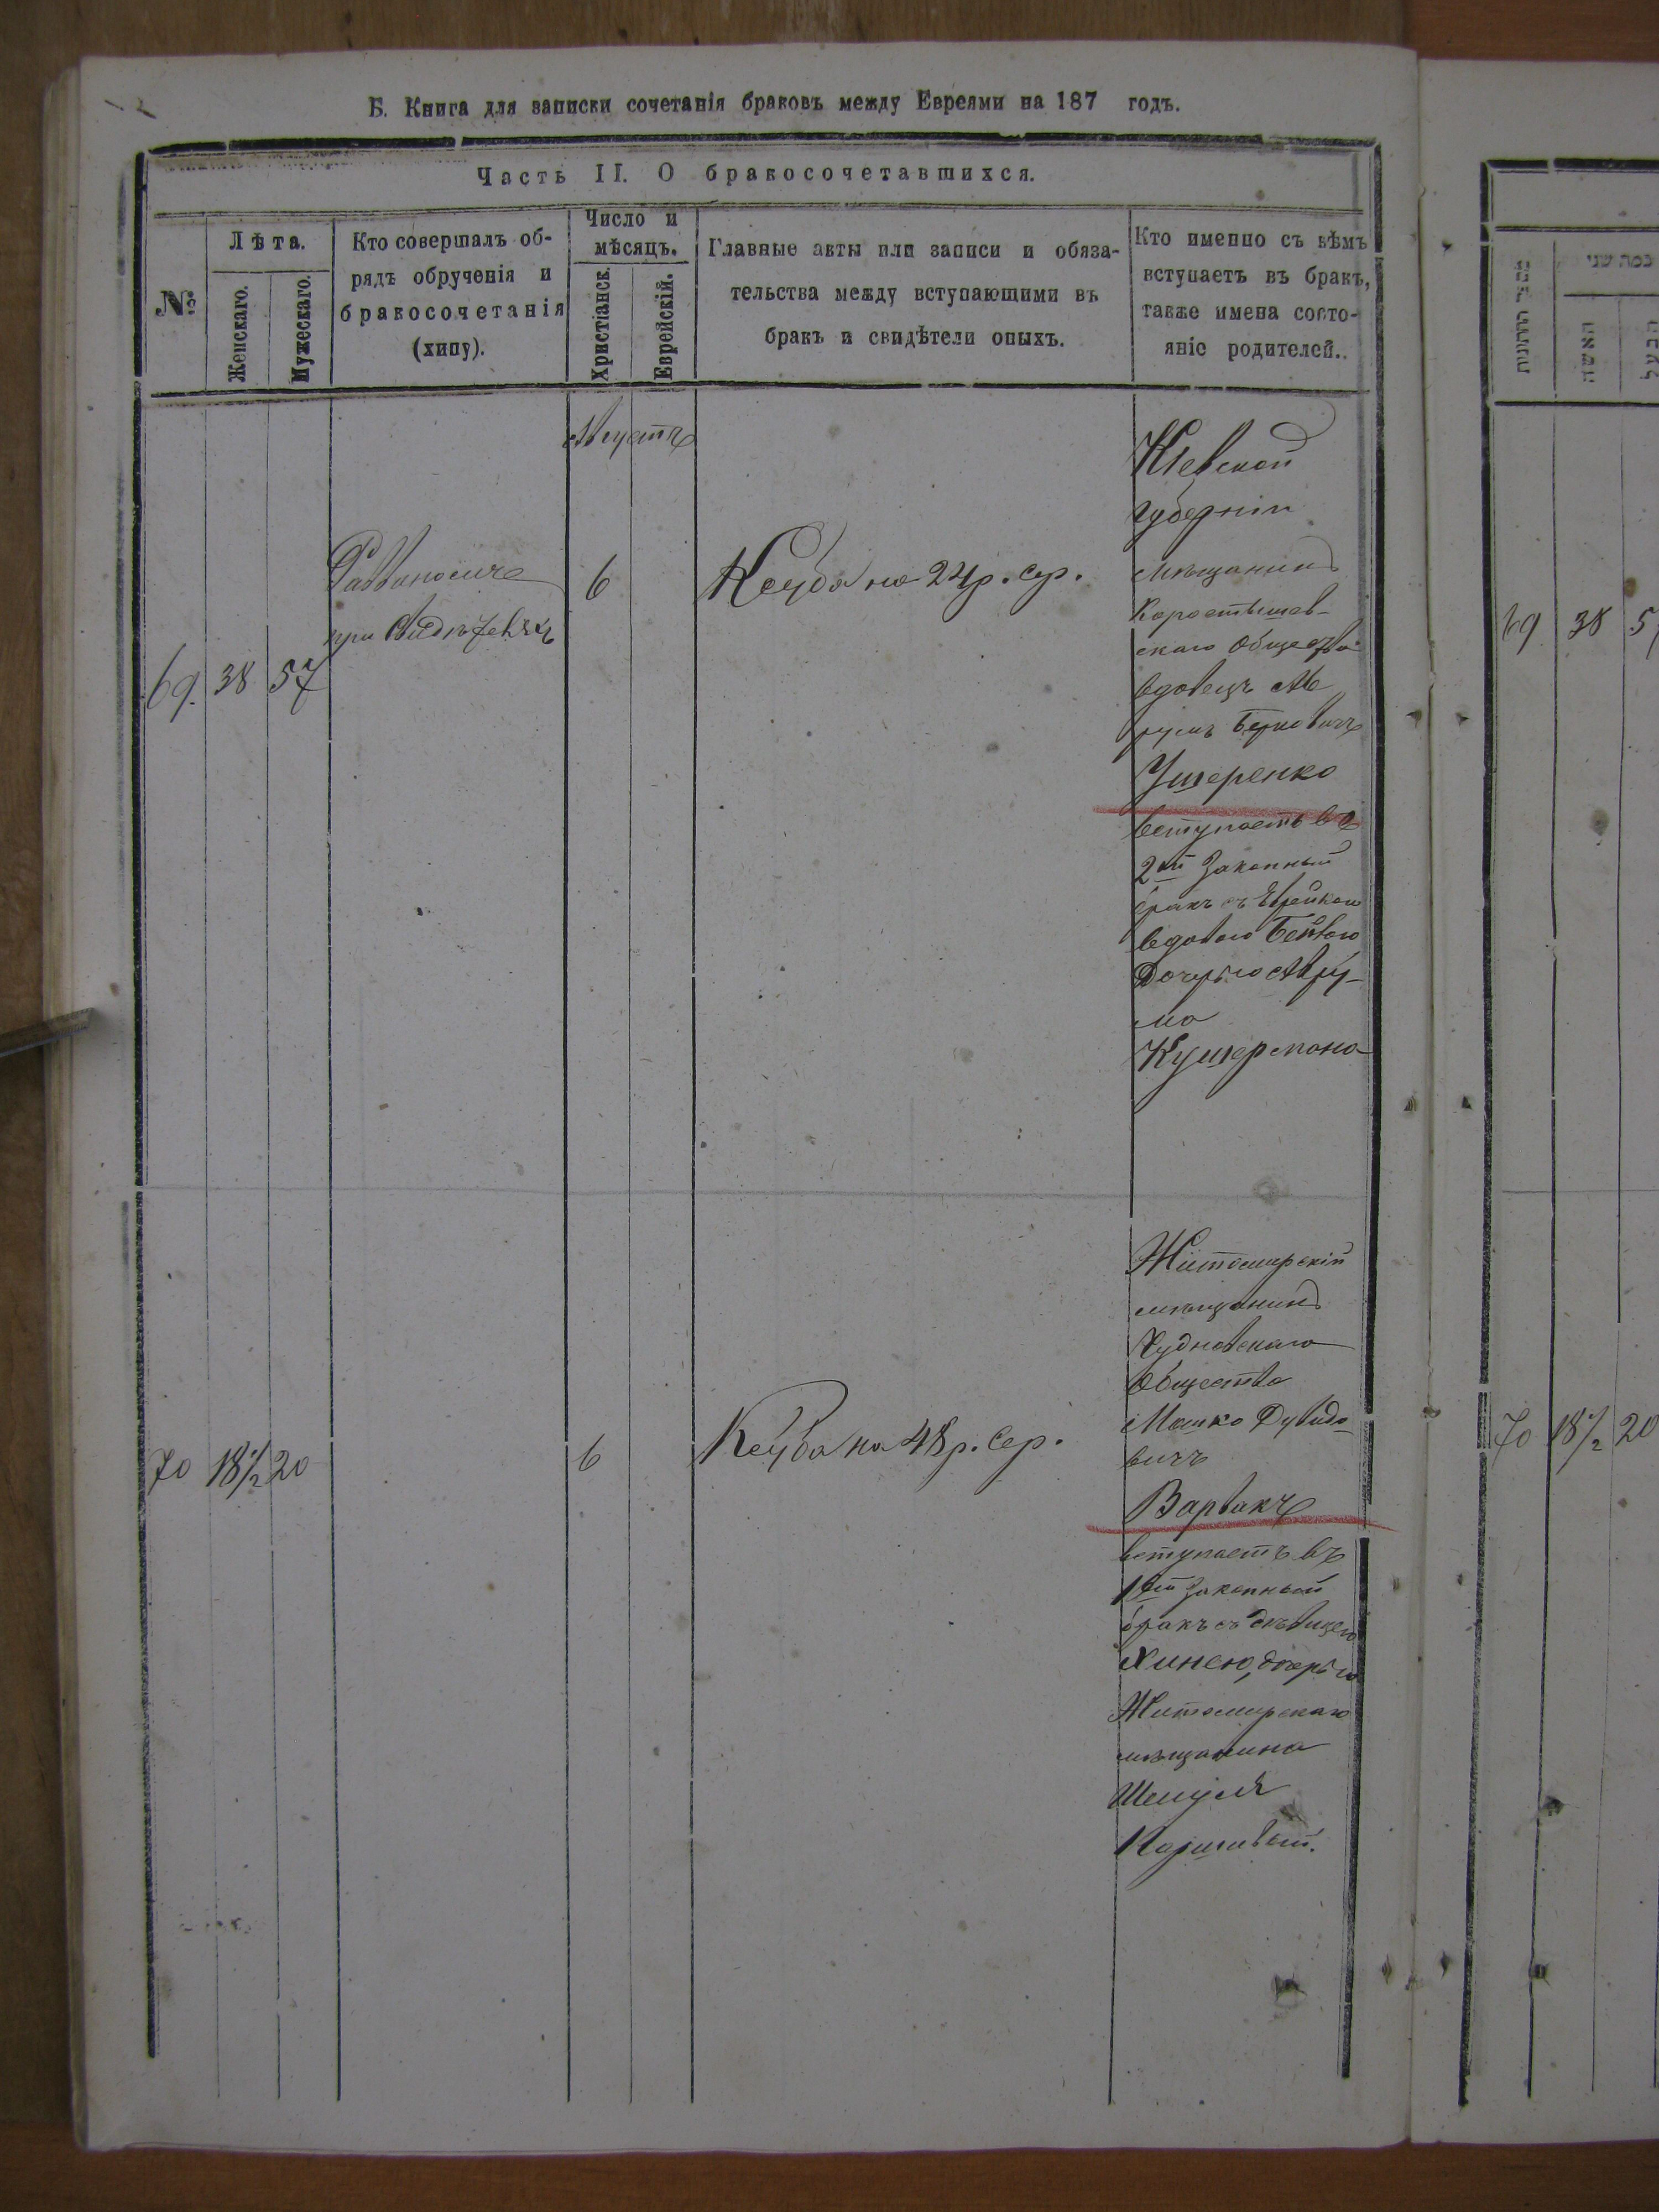 Б. Книга для записки сочетанія браковъ между Евреями на 187 годъ.
Часть II. О бракосочетавшихся.
№
Лѣта.
Женскаго.
Мужескаго.
Кто совершалъ об-
рядъ обрученія и
бракосочетанія
(хипу).
Число и
мѣсяцъ.
Христіанск.
Еврейскій.
Главные акты или записи и обяза-
тельства между вступающими въ
бракъ и свидѣтели оныхъ.
Кто именно съ кѣмъ
вступаетъ въ бракъ,
также имена состо-
яніе родителей.
Августъ
69. 38 57
при
6
Кеуба на 24 р. сер.
Кіевской
губерніи
мѣщанинъ
Коростышев-
скаго общества
вдовецъ Ав
румъ Берковичъ
Ушеренко
вступаетъ въ
2ой законный
бракъ съ Еврейкою
вдовою
Дочерью Авру-
ма
Кушермана
70 18 1/2 20
6
Кеуба на 48 р. сер.
Житомирскій
мѣщанинъ
Чудновскаго
общества
Мошко Дувидо-
вичъ
Варвакъ
вступаетъ въ
1вый законный
бракъ съ дѣвицею
Хинею, дочерью
Житомирскаго
мѣщанина
Шмуля
69 38 5
70 18 1/2 20
האשה
הבעל